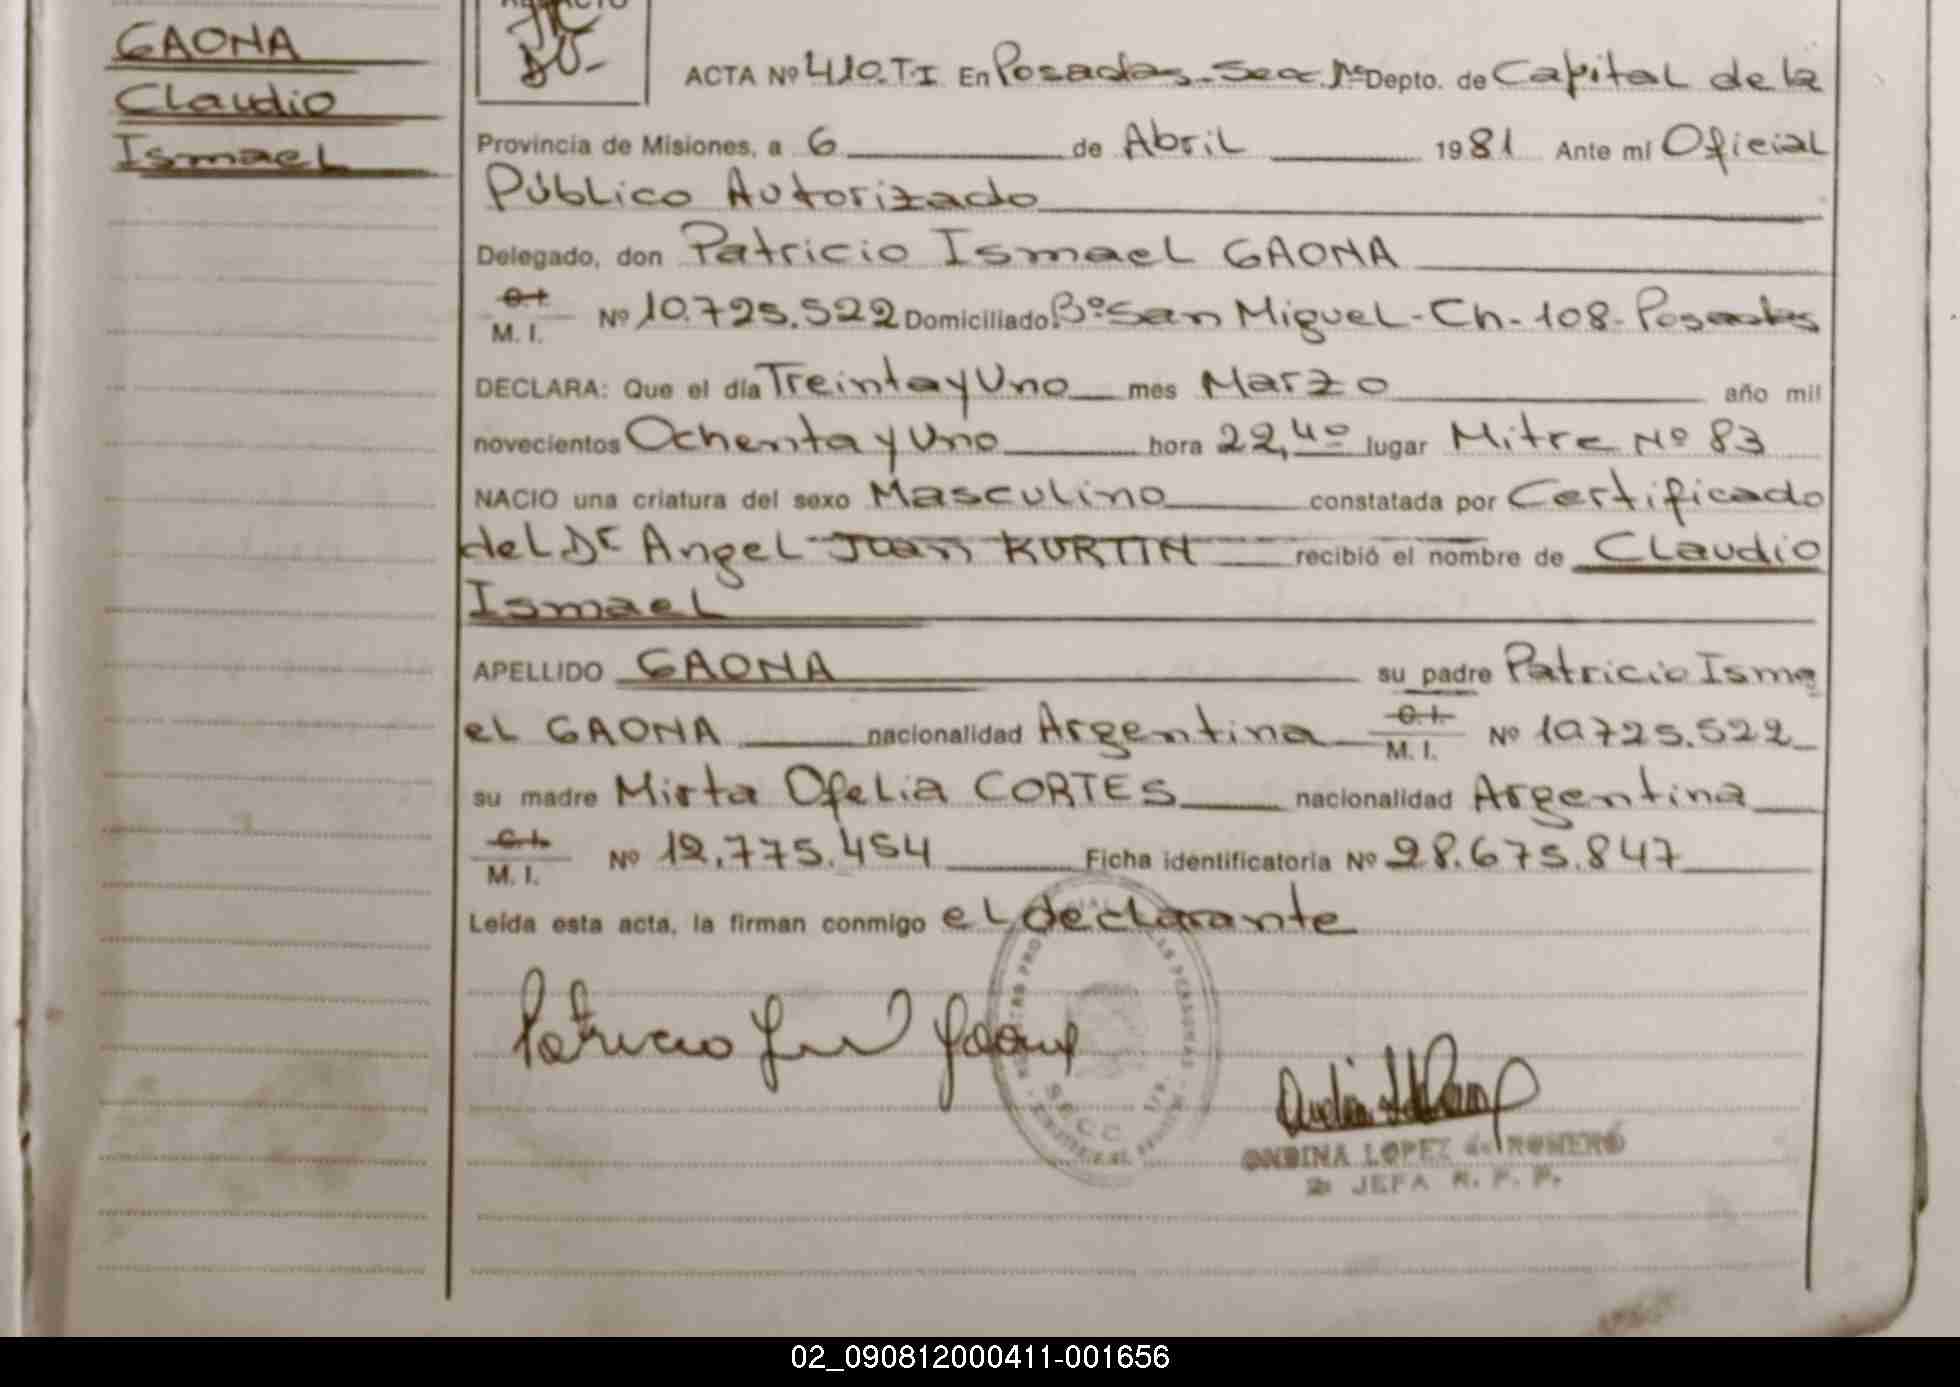 GAONA
Claudio
Ismael
ACTA Nº 410.T.I En Posadas-Secc.1ª Depto. de Capital de la
Provincia de Misiones, a 6 de Abril 1981 Ante mi Oficial
Público Autorizado
Delegado, don Patricio Ismael GAONA
C.I.
M. I. Nº 10.725.522 Domiciliado Bº San Miguel-Ch-108-Posadas
DECLARA: Que el día Treinta y Uno mes Marzo año mil
novecientos Ochenta y Uno hora 22,40 lugar Mitre Nº 83
NACIO una criatura del sexo Masculino constatada por Certificado
del Dr Angel Juan KURTIN recibió el nombre de Claudio
Ismael
APELLIDO GAONA su padre Patricio Isma
el GAONA nacionalidad Argentina C.I. M. I. Nº 10.725.522
su madre Mirta Ofelia CORTES nacionalidad Argentina
C.I.
M. I. Nº 12.775.454 Ficha identificatoria Nº 28.675.847
Leída esta acta, la firman conmigo el declarante
Patricio Gaona
SECC. 1ra.
ONDINA LOPEZ de ROMERO
JEFA R. P. P.
02_090812000411-001656